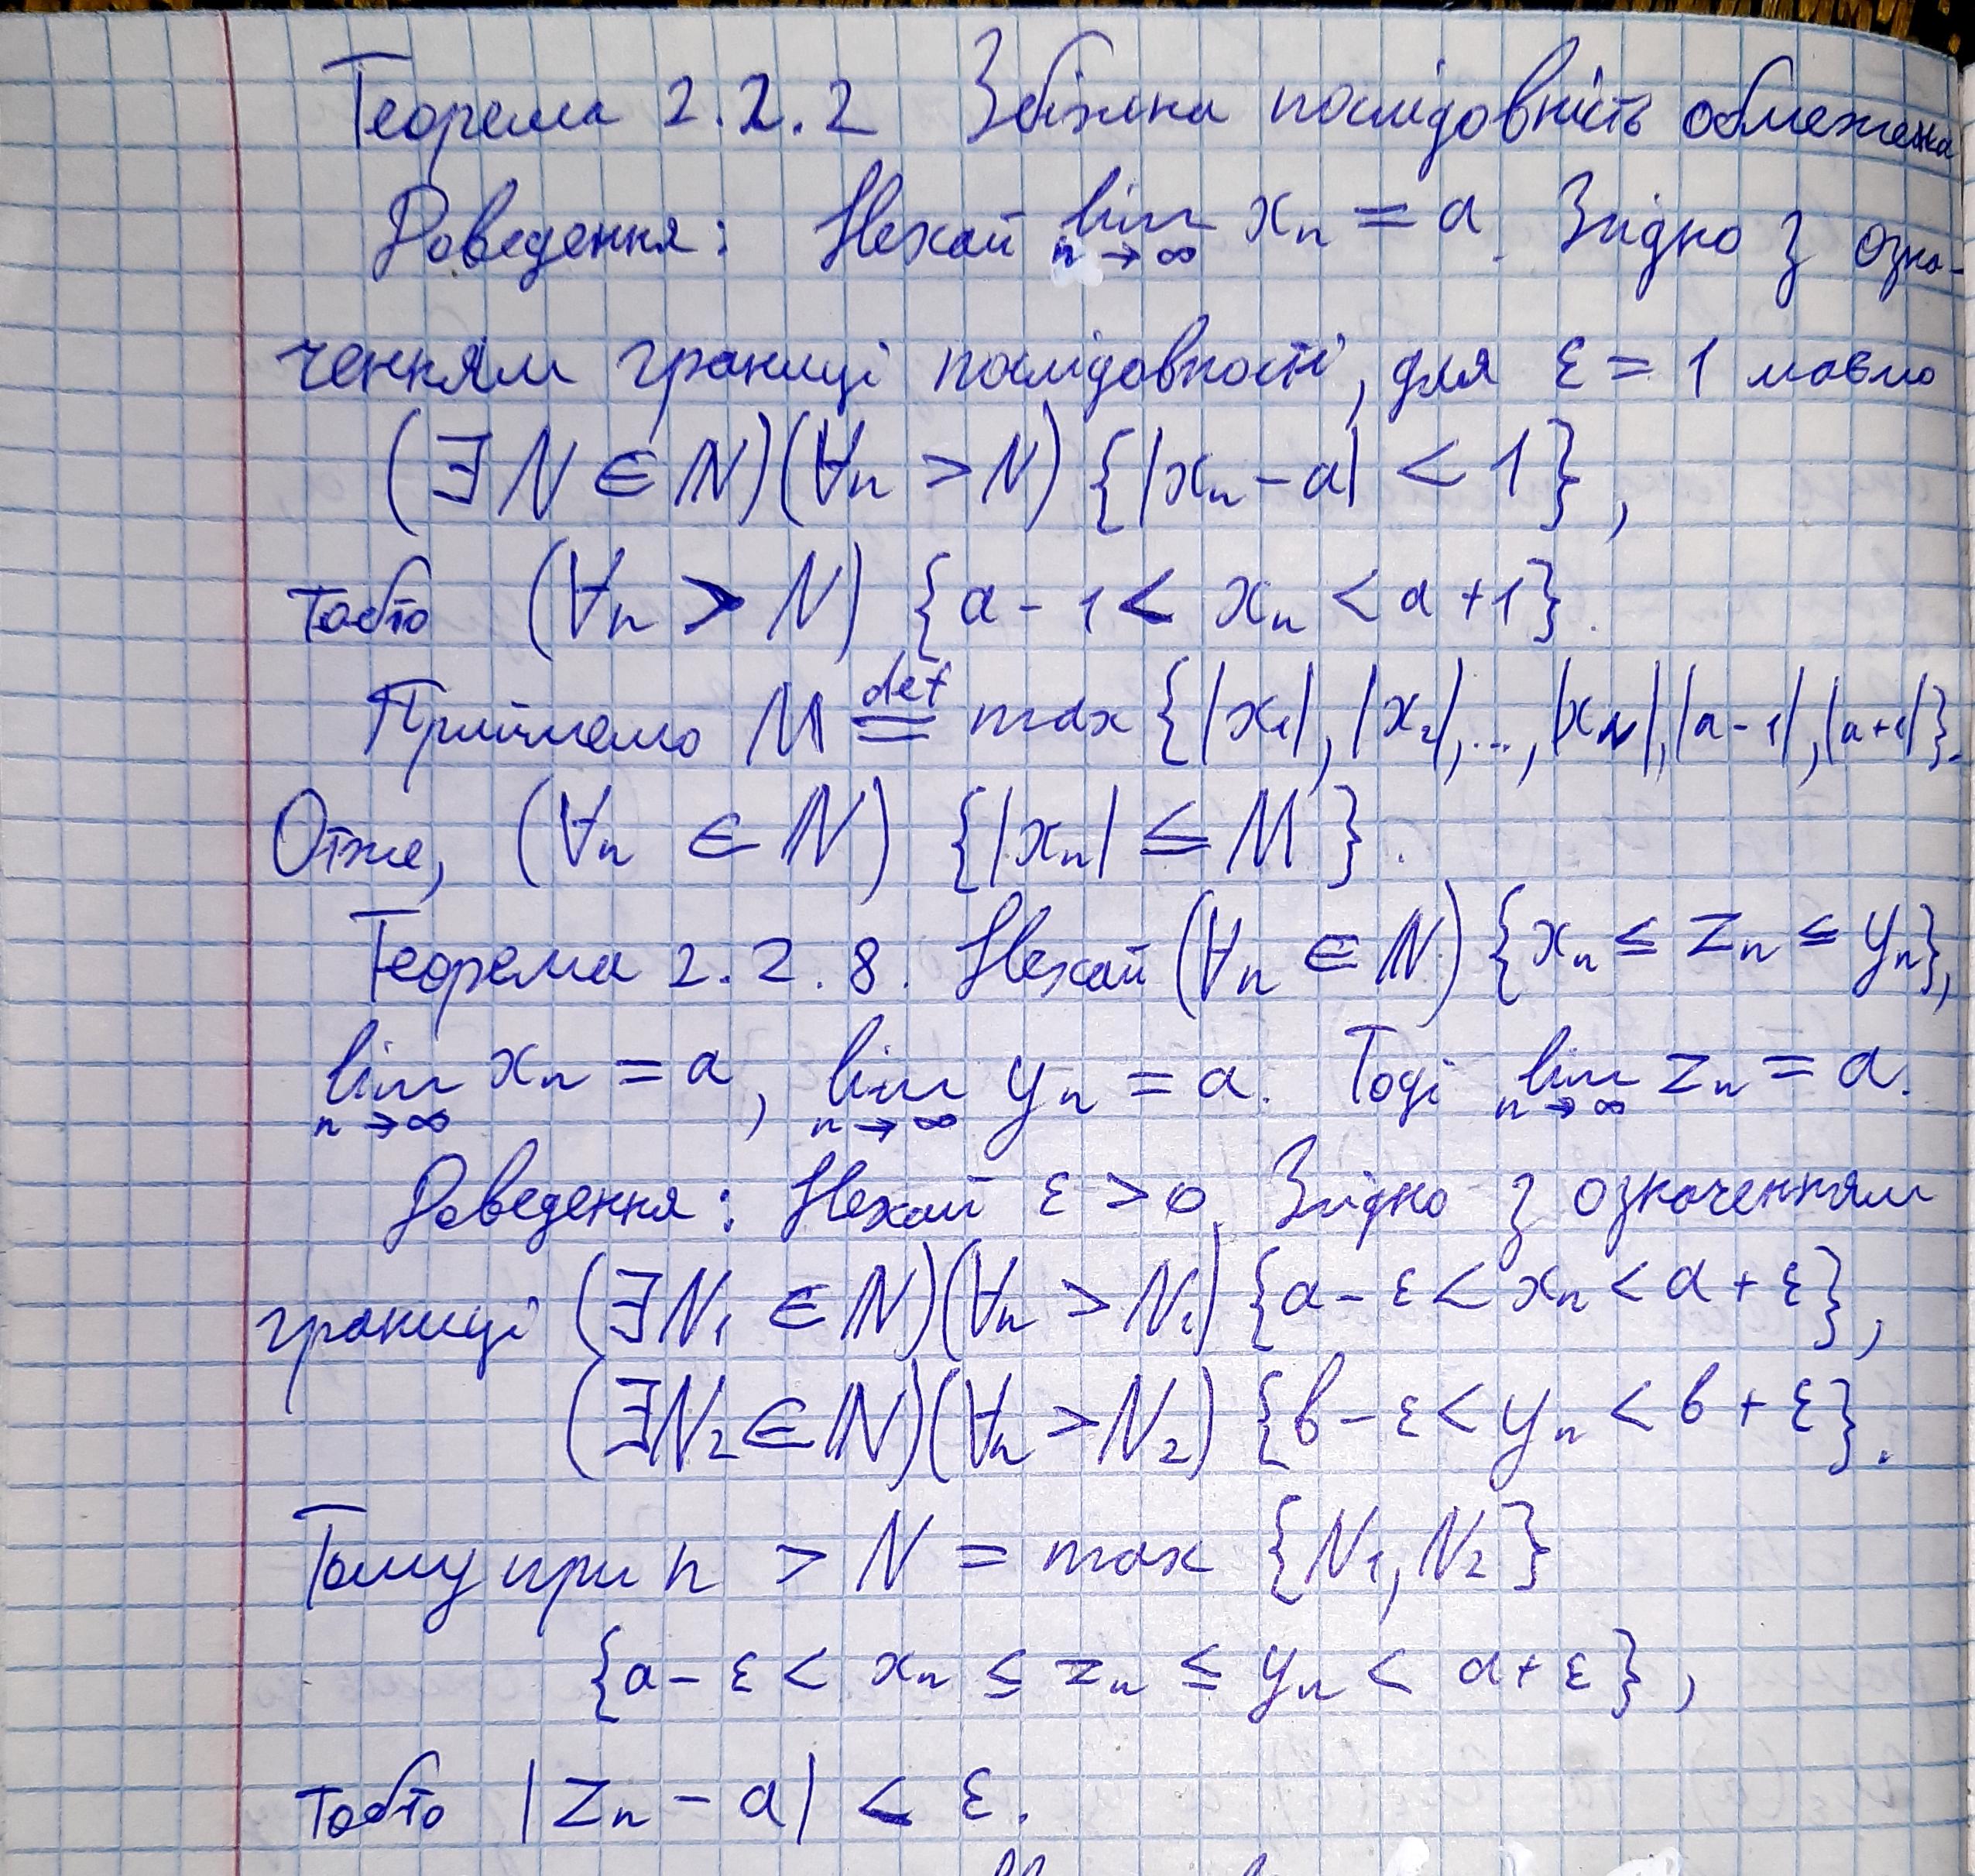 Теорема 2.2.2 Збіжна послідовність обмежена
Доведення: Нехай lim n→∞ xₙ = a. Згідно з озна-
ченням границі послідовності, для ε = 1 маємо
(∃ N ∈ ℕ)(∀n > N) {|xₙ - a| < 1},
тобто (∀n > N) {a - 1 < xₙ < a + 1}.
Приймемо M def= max {|x₁|, |x₂|, ..., |x_N|, |a - 1|, |a + 1|}.
Отже, (∀n ∈ ℕ) {|xₙ| ≤ M}.
Теорема 2.2.8. Нехай (∀n ∈ ℕ) {xₙ ≤ zₙ ≤ yₙ},
lim n→∞ xₙ = a, lim n→∞ yₙ = a. Тоді lim n→∞ zₙ = a.
Доведення: Нехай ε > 0. Згідно з означенням
границі (∃N₁ ∈ ℕ)(∀n > N₁) {a - ε < xₙ < a + ε},
(∃N₂ ∈ ℕ)(∀n > N₂) {b - ε < yₙ < b + ε}.
Тому при n > N = max {N₁, N₂}
{a - ε < xₙ ≤ zₙ ≤ yₙ < a + ε},
тобто |zₙ - a| < ε.